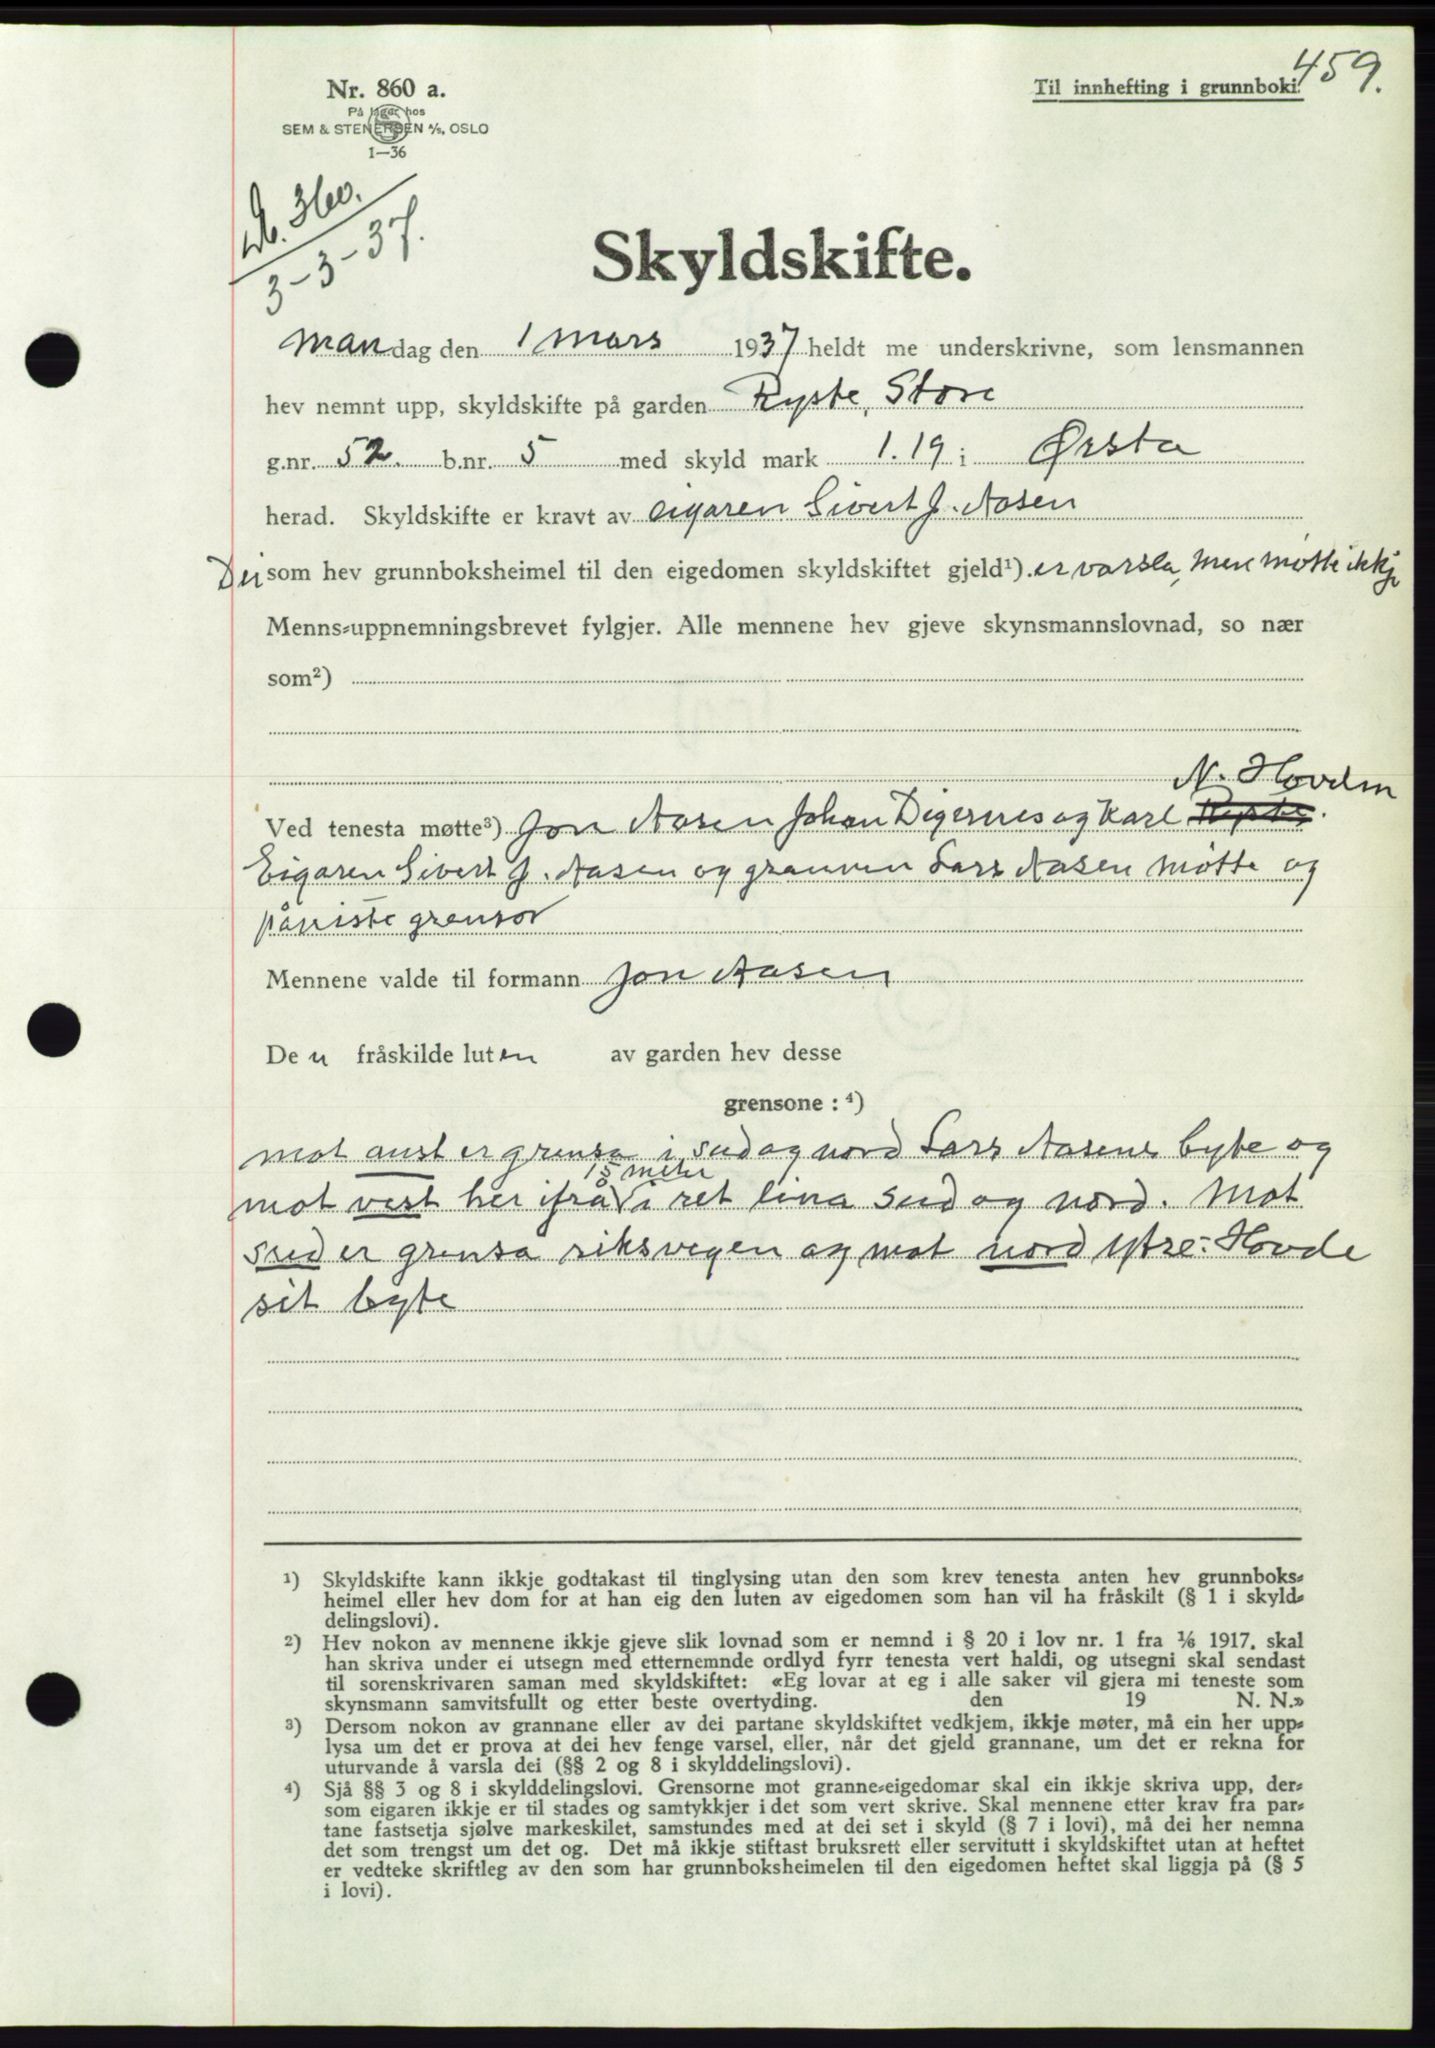 459.
Nr. 860 a.
Til innhefting i grunnboki.
På lager hos
SEM & STENERSEN A/S, OSLO
1—36
Db. 360.
3-3-37.
Skyldskifte.
Mandag den 1 mars 1937 heldt me underskrivne, som lensmannen
hev nemnt upp, skyldskifte på garden Ryste, Store
g.nr. 52. b.nr. 5 med skyld mark 1.19 i Ørsta
herad. Skyldskifte er kravt av eigaren Sivert J. Aasen
Dei som hev grunnboksheimel til den eigedomen skyldskiftet gjeld¹). er varsla, men møtte ikkje
Menns-uppnemningsbrevet fylgjer. Alle mennene hev gjeve skynsmannslovnad, so nær
som²)
N. Hovden
Ved tenesta møtte³) Jon Aasen Johan Digernes og Karl Ryste.
Eigaren Sivert J. Aasen og grannen Lars Aasen møtte og
påviste grensor
Mennene valde til formann Jon Aasen
Den fråskilde luten av garden hev desse
grensone : ⁴)
mot aust er grensa i sud og nord Lars Aasens byte og
15 meter
mot vest her ifrå i ret lina sud og nord. Mot
sud er grensa riksvegen og mot nord ytre-Hovde
sit byte
¹) Skyldskifte kann ikkje godtakast til tinglysing utan den som krev tenesta anten hev grunnboks-
heimel eller hev dom for at han eig den luten av eigedomen som han vil ha fråskilt (§ 1 i skyld-
delingslovi).
²) Hev nokon av mennene ikkje gjeve slik lovnad som er nemnd i § 20 i lov nr. 1 fra 1/6 1917, skal
han skriva under ei utsegn med etternemnde ordlyd fyrr tenesta vert haldi, og utsegni skal sendast
til sorenskrivaren saman med skyldskiftet: «Eg lovar at eg i alle saker vil gjera mi teneste som
skynsmann samvitsfullt og etter beste overtyding. den 19 N. N.»
³) Dersom nokon av grannane eller av dei partane skyldskiftet vedkjem, ikkje møter, må ein her upp-
lysa um det er prova at dei hev fenge varsel, eller, når det gjeld grannane, um det er rekna for
uturvande å varsla dei (§§ 2 og 8 i skylddelingslovi).
⁴) Sjå §§ 3 og 8 i skylddelingslovi. Grensorne mot granne-eigedomar skal ein ikkje skriva upp, der-
som eigaren ikkje er til stades og samtykkjer i det som vert skrive. Skal mennene etter krav fra par-
tane fastsetja sjølve markeskilet, samstundes med at dei set i skyld (§ 7 i lovi), må dei her nemna
det som trengst um det og. Det må ikkje stiftast bruksrett eller servitutt i skyldskiftet utan at heftet
er vedteke skriftleg av den som har grunnboksheimelen til den eigedomen heftet skal liggja på (§ 5
i lovi).